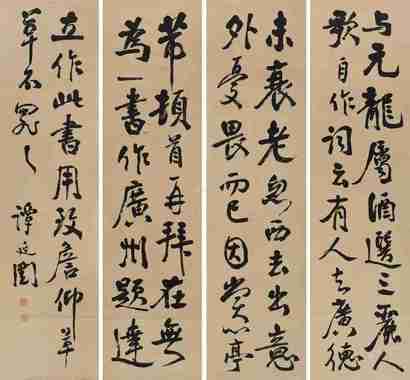 与元龍屬酒選三麗人
歌自作詞云有人去廣德
未衰老忽西去出意
外憂畏而已因賞心亭
芾頓首再拜在無
為一書作廣州題達
立作此書用致詹仰草
草不宛之 譚延闓